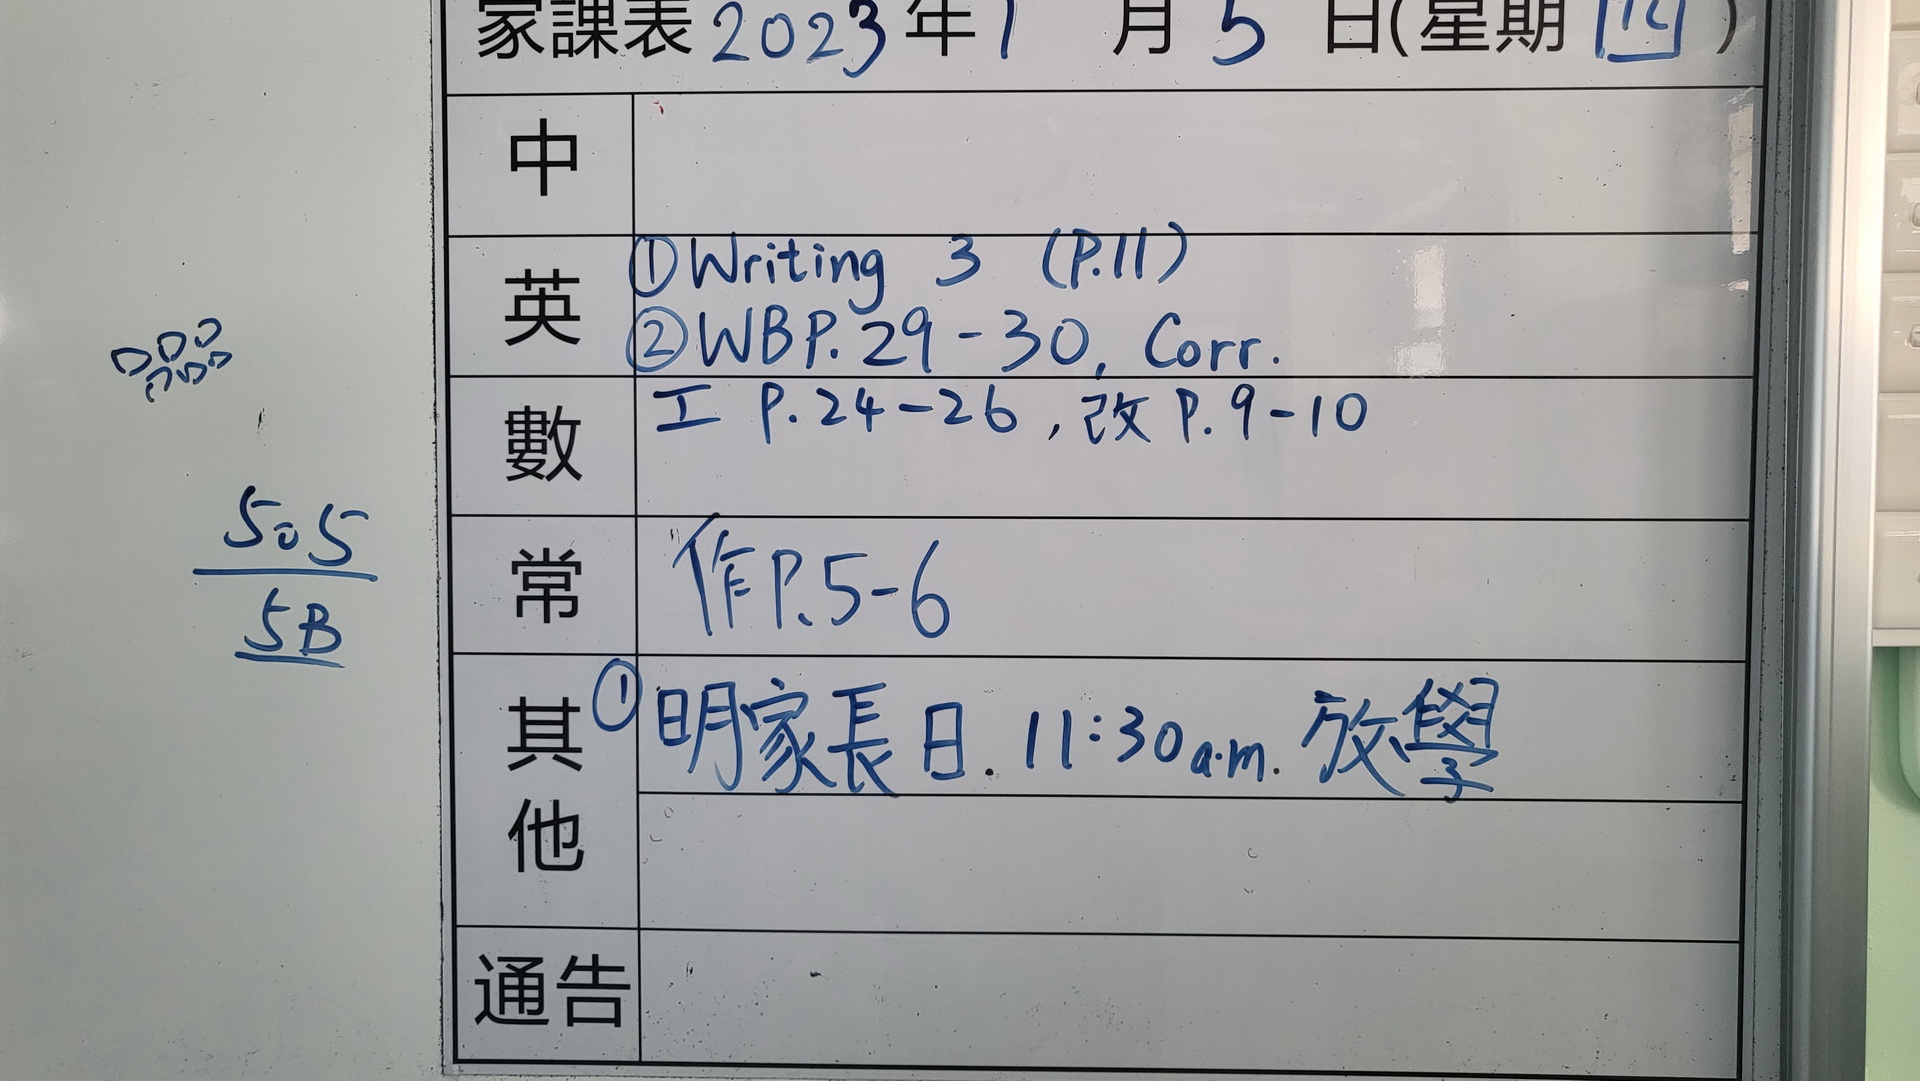 家課表 2023 年 1 月 5 日(星期 四 )
中
英
①Writing 3 (P.11)
②WBP.29-30, Corr.
數
工 P.24-26, 改 P.9-10
常
作P.5-6
其他
①明家長日. 11:30a.m. 放學
通告
505
5B